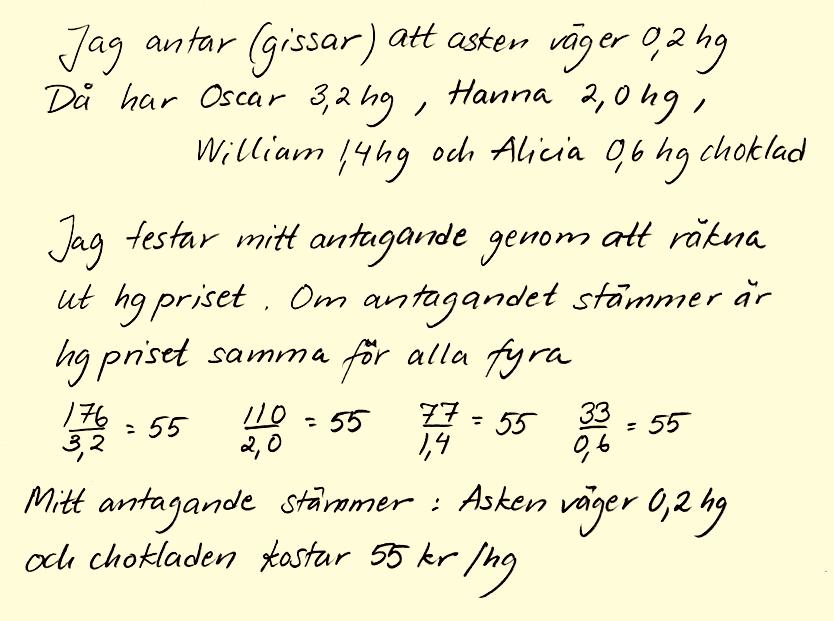 Jag antar (gissar) att asken väger 0,2 hg
Då har Oscar 3,2 hg, Hanna 2,0 hg,
William 1,4 hg och Alicia 0,6 hg choklad
Jag testar mitt antagande genom att räkna
ut hg priset. Om antagandet stämmer är
hg priset samma för alla fyra
176/3,2 = 55 110/2,0 = 55 77/1,4 = 55 33/0,6 = 55
Mitt antagande stämmer : Asken väger 0,2 hg
och chokladen kostar 55 kr/hg